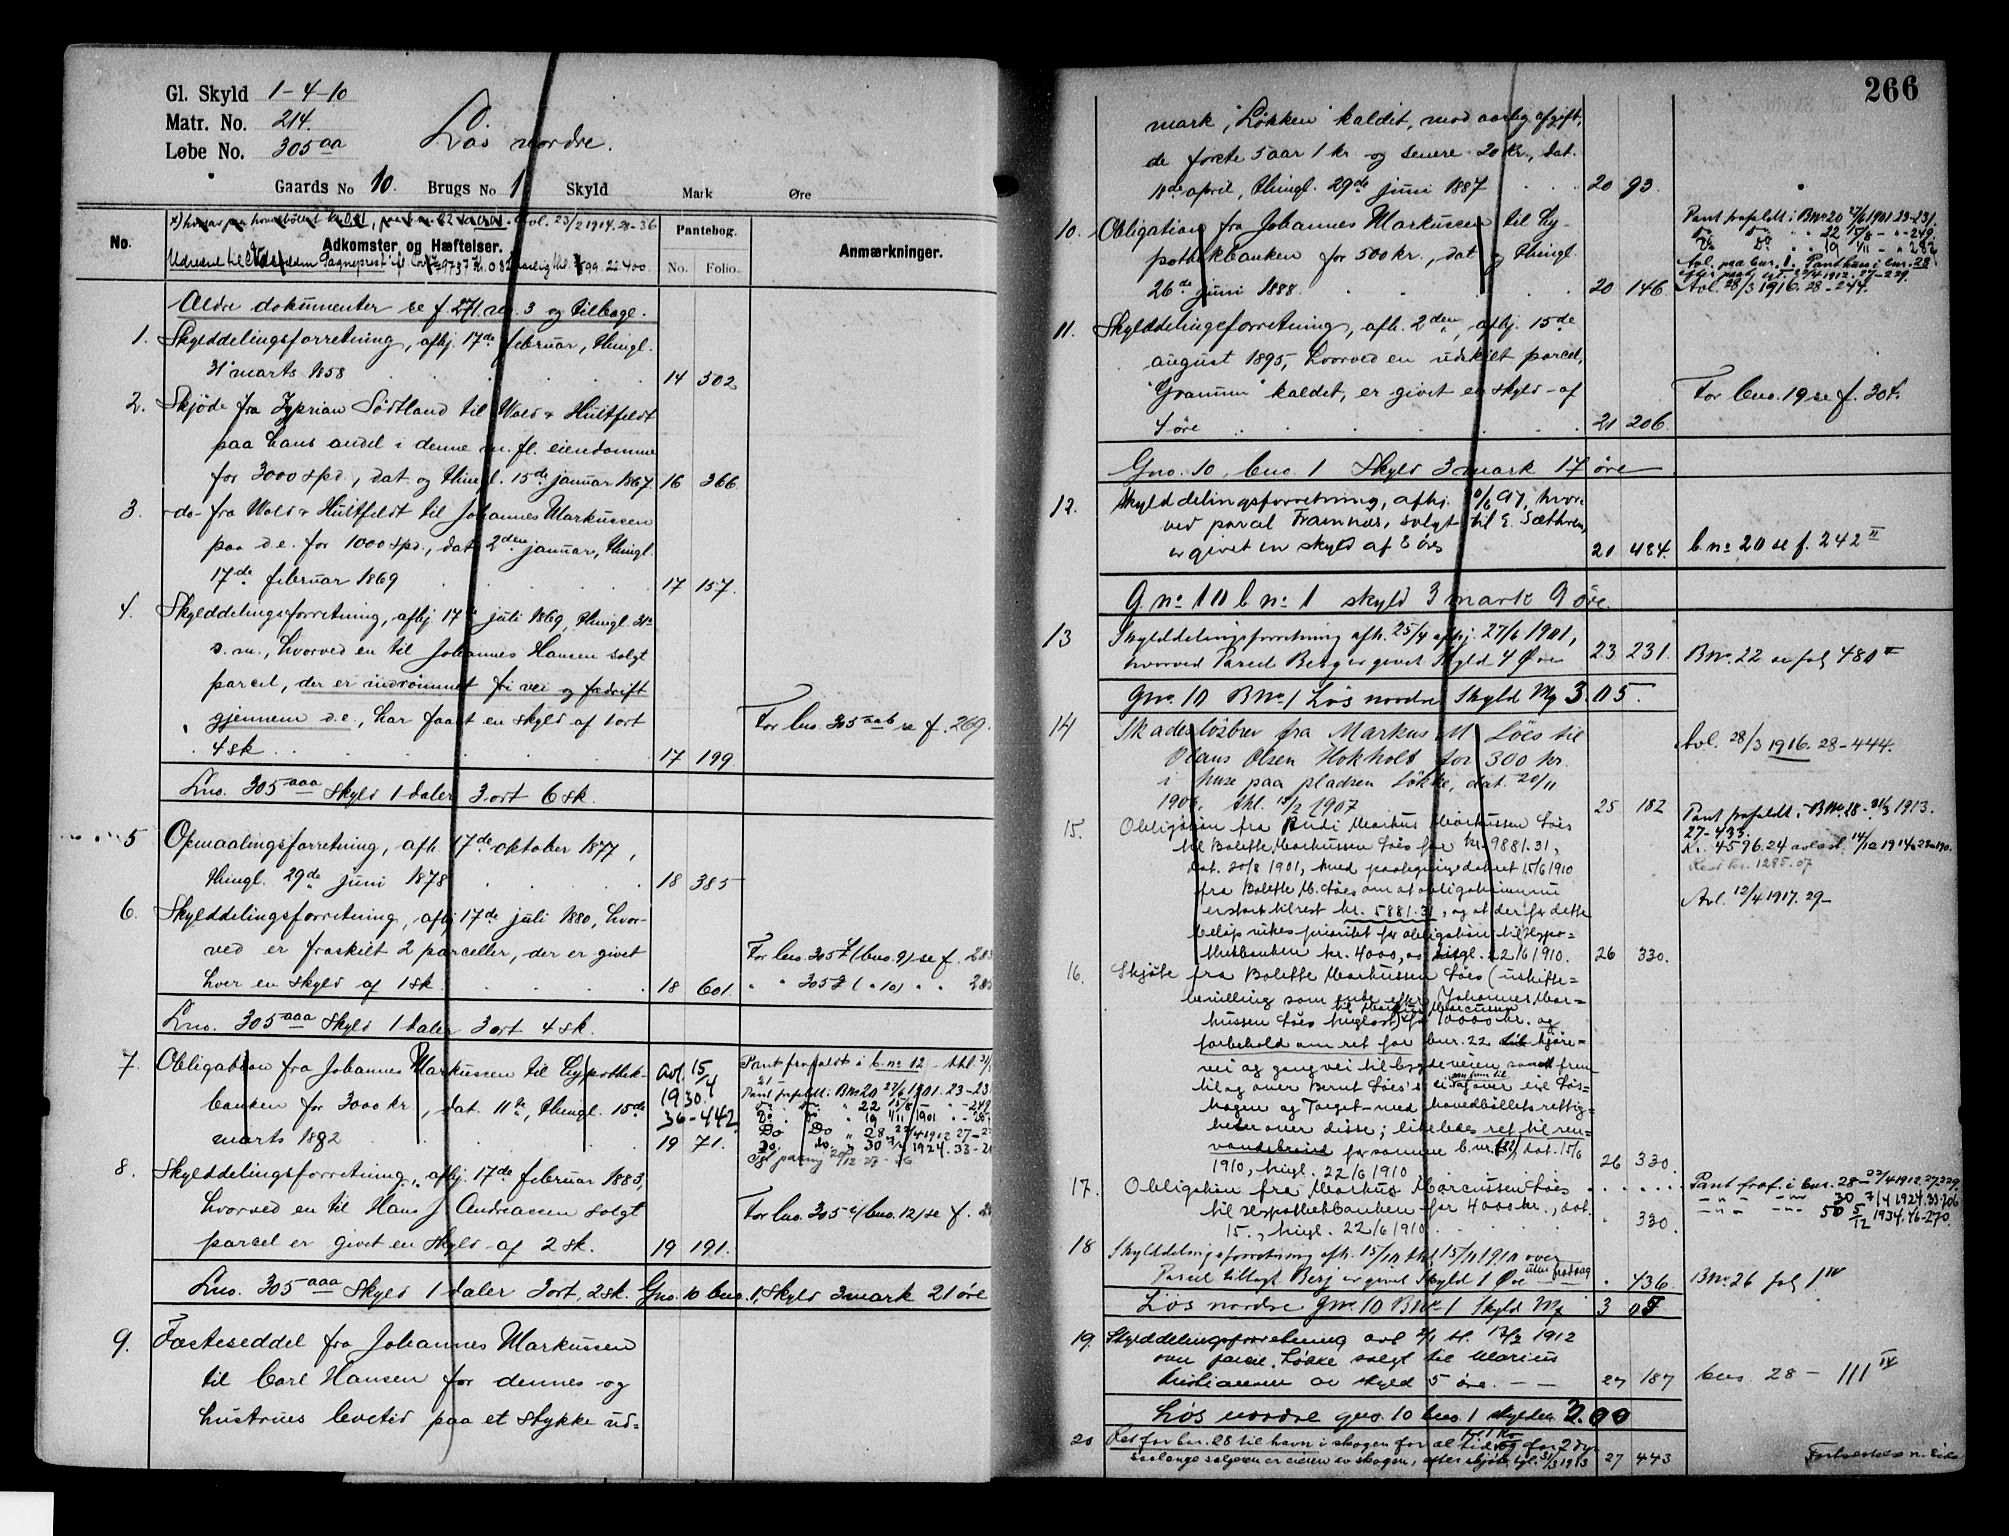 Gl. Skyld 1-4-10
Matr. No. 214.
Løbe No. 305 aa
Løs nordre.
Gaards No 10. Brugs No 1 Skyld Mark Øre
avl. 23/2 1904. 28-36
No.
Adkomster og Hæftelser.
Pantebog.
No. Folio.
Anmærkninger.
Ældre dokumenter se f. 271. no. 3 og tilbage.
1. Skylddelingsforretning, afhj. 17de februar, thingl.
31 marts 1858 14 502
2. Skjøde fra Zyprian Södtland til Wold & Hultfeldt
paa hans andel i denne m. fl. eiendomme
for 3000 spd., dat. og thingl. 15de januar 1867 16 366.
3. -do- fra Wold & Hultfeldt til Johannes Markussen
paa d.e. for 1000 spd., dat. 2den januar, thingl.
17de februar 1869 17 157.
4. Skylddelingsforretning, afhj. 17de juli 1869, thingl. 31te
s.m., hvorved en til Johannes Hansen solgt
parcel, der er indrømmet fri vei og fædrift
gjennem d.e., har faaet en skyld af 1 ort
4 sk 17 199
For lno. 305 aab se f. 269.
Lno. 305 aaa Skyld 1 daler 3 ort 6 sk.
5 Opmaalingsforretning, afh. 17de oktober 1877,
thingl. 29de juni 1878 18 385
6. Skylddelingsforretning, afhj. 17de juli 1880, hvor-
ved er fraskilt 2 parceller, der er givet
hver en skyld af 1 sk. 18 601.
For lno. 305 f (bno. 9) se f. 283
" " 305 g ( " 10) " " 285
Lno. 305 aaa Skyld 1 daler 3 ort 4 sk.
7. Obligation fra Johannes Markussen til Hypothek-
banken for 3000 kr., dat. 11te, thingl. 15de
marts 1882 19 71.
Avl. 15/4
1930.
36-442.
Pant frafaldt i b. no 12
Pant frafaldt i Bno 20 27/6 1901. 23-23
do. do. " 22 15/8 - " - 249
Do. " 19 1/11 1901
Do Do " 28 23/4 1912 27-2
Do. do. " 30 7/4 1924. 33-20
8. Skylddelingsforretning, afhj. 17de februar 1883,
hvorved en til Hans J Andreassen solgt
parcel er givet en skyld af 2 sk. 19 191.
For lno. 305 i (bno. 12) se f.
Lno. 305 aaa Skyld 1 daler 3 ort, 2 sk. Gno. 10 bno. 1, Skyld 3 mark 21 øre
9. Fæsteseddel fra Johannes Markussen
til Carl Hansen for dennes og
hustrues levetid paa et stykke ud-
266
mark, "Løkken" kaldet, mod aarlig afgift,
de første 5 aar 1 kr. og senere 20 kr., dat.
11de april, thingl. 29de juni 1887 20 93.
10. Obligation fra Johannes Markussen til Hy-
pothekbanken for 500 kr., dat. og thingl.
26de juni 1888. 20 146
Pant frafaldt i Bno 20 27/6 1901 23-231
do do " 22 15/8 - " - 249
Do do " 19 1/11 - " 282
Avl. paa bnr. 1. Panthus i bnr. 28
Avl. 28/3 1916. 28-444.
11. Skylddelingsforretning, afh. 2den, afhj. 15de
august 1895, hvorved en udskilt parcel,
"Granum" kaldet, er givet en skyld af
4 øre 21 206
For bno. 19 se f. 304.
Gno. 10, bno. 1 Skyld 3 mark 17 øre
12. Skylddelingsforretning, afhj. 30/6 97, hvor-
ved parcel Framnæs, solgt til E. Sæthren,
er givet en skyld af 8 øre 21 484.
b. no 20 se f. 242 II
G. no 10 b no 1 skyld 3 mark 9 øre.
13 Skylddelingsforretning afh. 25/4 afhj. 27/6 1901,
hvorved Parcel Berg er givet Skyld 4 Øre 23 231.
Bno. 22 se fol 480 II
Gno. 10 Bno. 1 Løs nordre Skyld My 3.05.
14 Skadesløsbrev fra Markus M Löes til
Olaus Olsen Hokholt for 300 kr.
i huse paa pladsen Løkke, dat. 20/11
1906, thl. 15/2 1907 25 182
Avl. 28/3 1916. 28-444.
15. Obligation fra Markus Markussen Löes
til Bolette Markussen Löes for kr. 9881.31,
dat. 20/8 1901, med paategning dateret 15/6 1910
fra Bolette M. Löes om at obligationens nu
erstattilrest kr. 5881.31, og at der for dette
beløp vikes prioritet for obligation til Hypo-
thekbanken kr. 4000, tingl. 22/6 1910. 26 330.
Pant frafaldt i Bno 28 - 31/3 1913.
27-433.
Kr. 4596.24 avløst 14/12 1914 28-190.
Rest kr. 1285.07
Avl. 12/4 1917. 29-
16. Skjøte fra Bolette Markussen Löes (uskifte-
bevilling som enke efter Johannes Mar-
kussen Löes til Markus Marcussen for 10000 kr. og
forbehold om ret for bnr. 22 til kjøre-
vei og gangvei til bygdeveien samt frem
til og over Bernt Löes's eid som frem til og over eie Løs-
hagen og Torget - med hovedbøllets rettig-
heter over disse; likeledes ret til ren-
vandsbrønd for samme b.nr. (22), dat. 15/6
1910, tingl. 22/6 1910 26 330.
17. Obligation fra Markus Marcussen Löes
til Hypothekbanken for 4000 kr., dat.
15., tingl. 22/6 1910 " 330.
Pant fraf. i bnr. 28 - 23/4 1912, 27.229.
- " - " - 30 7/4 1924. 33-206
- " - " - 50 5/12 1934. 46-270.
18 Skylddelingsforretning afh. 15/10 thl. 15/11 1910 over
Parcel tillagt Berg er givet Skyld 1 Øre uten fradrag " 436.
Bno. 26 fol 1 IV
Løs nordre Gno. 10 Bno. 1 Skyld My 3 05
19. Skylddelingsforretning avl 2/1 tl. 13/2 1912
over parcel Løkke solgt til Marius
Kristiansen av skyld 5 øre. - - 27 187
bno. 28 - 111 IV
Løs nordre gno. 10 bno. 1 skylden 3.00
20 Ret for bnr. 28 til havn i skogen for al tid til 1 ko og for 2 dyr
saalænge sælgeren er eier av skogen, efter skjøte, tgl. 31/3 1913 27 443
Fortsættes n. side